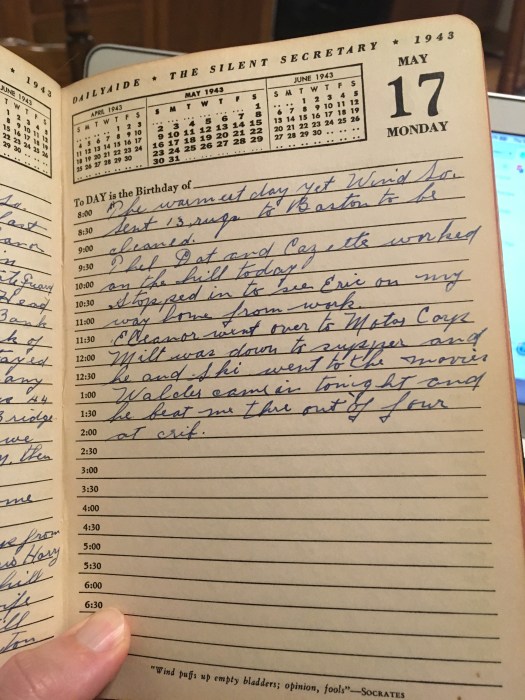 * 1943
DAILYAIDE * THE SILENT SECRETARY * 1943
JUNE 1943
T W T F S
APRIL 1943
S M T W T F S
1 2 3
4 5 6 7 8 9 10
11 12 13 14 15 16 17
18 19 20 21 22 23 24
25 26 27 28 29 30
MAY 1943
S M T W T F S
1
2 3 4 5 6 7 8
9 10 11 12 13 14 15
16 17 18 19 20 21 22
23 24 25 26 27 28 29
30 31
JUNE 1943
S M T W T F S
1 2 3 4 5
6 7 8 9 10 11 12
13 14 15 16 17 18 19
20 21 22 23 24 25 26
27 28 29 30
MAY
17
MONDAY
To DAY is the Birthday of
8:00 The warmest day yet Wind So.
8:30 Sent 13 rugs to Boston to be
9:00 cleaned.
9:30 Phel Dot and Cazette worked
10:00 on the hill today
10:30 Stopped in to see Eric on my
11:00 way home from work.
11:30 Eleanor went over to Motor Corps
12:00 Milt was down to supper and
12:30 he and Ski went to the movies
1:00 Walder came in tonight and
1:30 he beat me thre out of four
2:00 at crib.
2:30
3:00
3:30
4:00
4:30
5:00
5:30
6:00
6:30
"Wind puffs up empty bladders; opinion, fools"—SOCRATES